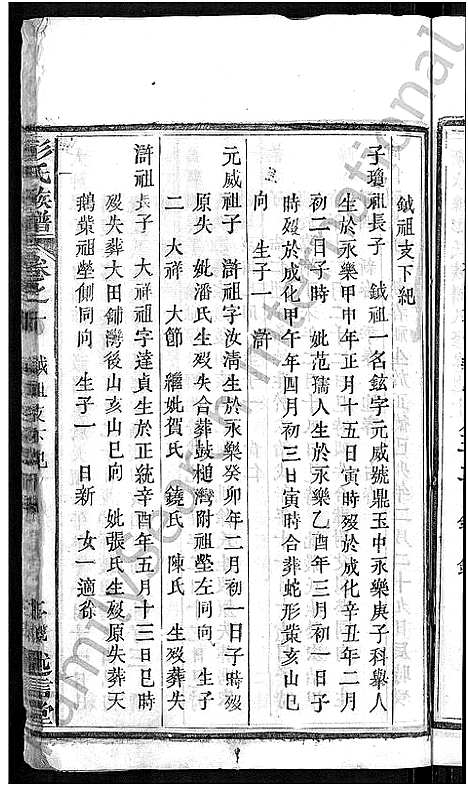 鉞祖支下紀
子瓊祖長子 鉞祖一名鉉字元威號鼎玉中永樂庚子科舉人
生於永樂甲申年正月十五日寅時歿於成化辛丑年二月
初二日子時 妣范孺人生於永樂乙酉年三月初一日子
時歿於成化甲午年四月初三日寅時合葬蛇形葉亥山巳
向 生子一 滸
元威祖子 滸祖字汝清生於永樂癸卯年二月初一日子時歿
原失 妣潘氏生歿失合葬鼓槌灣附祖塋左同向 生子
二 大祥 大節 繼妣賀氏 鐃氏 陳氏 生歿葬失
滸祖長子 大祥祖字達貞生於正統辛酉年五月十三日巳時
歿失葬大田舖灣後山亥山巳向 妣張氏生歿原失葬天
鵝葉祖塋側同向 生子一 日新 女一適徐
彭氏族譜
卷之
祖支下紀
堂
FamilySearch International